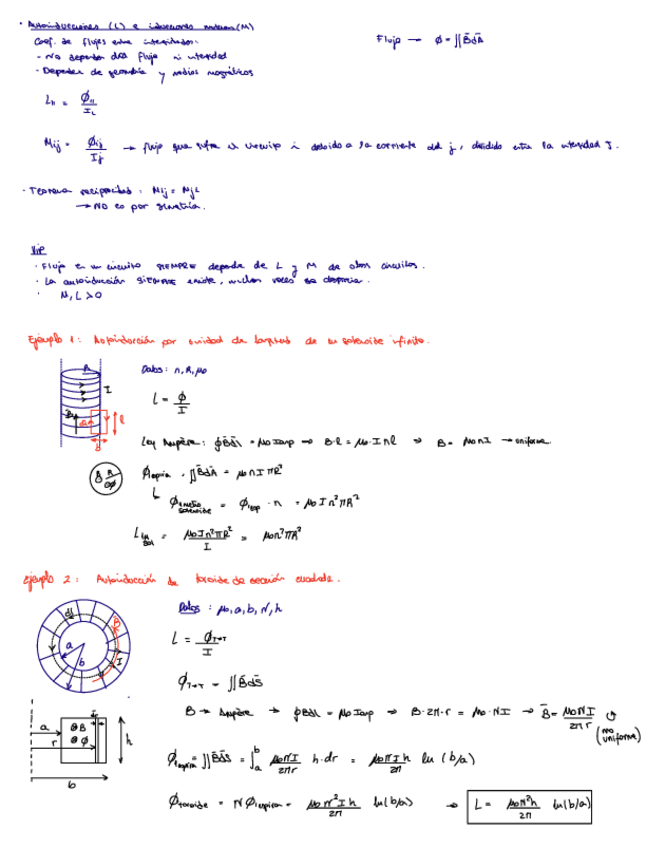 · Autoinducciones (L) e inducciones mutuas (M)
Flujo → ϕ = ∬B̄dĀ
Coef. de flujos entre intensidades:
- No depender del flujo ni intensidad
- Depender de geometría y medios magnéticos
L₁₁ = ϕ₁₁ / I₁
Mij = ϕij / Ij → flujo que sufre el circuito i debido a la corriente del j, dividido entre la intensidad J.
· Teorema reciprocidad: Mij = Mji
→ NO es por simetría.
VIP
· Flujo en un circuito SIEMPRE depende de L y M de otros circuitos.
· La autoinducción SIEMPRE existe, muchas veces se desprecia.
· M, L > 0
Ejemplo 1: Autoinducción por unidad de longitud de un solenoide infinito.
R
I
B
l
Datos: n, R, μ₀
L = ϕ / I
Ley Ampère: ∮B̄dl̄ = μ₀ Ienp ⇒ B·l = μ₀·I n l ⇒ B = μ₀ n I → uniforme.
R
ϕespira = ∬B̄dĀ = μ₀ n I π R²
ϕ1 metro solenoide = ϕesp · n = μ₀ I n² π R²
L1m sol = μ₀ I n² π R² / I = μ₀ n² π R²
Ejemplo 2: Autoinducción de toroide de sección cuadrada.
dl
B
a
b
I
Datos: μ₀, a, b, N, h
L = ϕTOT / I
ϕTOT = ∬B̄dS̄
B → Ampère → ∮B̄dl = μ₀ Ienp → B·2π·r = μ₀·NI → B̄ = μ₀NI / 2πr (no uniforme)
a
r
B
ϕ
h
b
ϕespira = ∬B̄dS̄ = ∫ₐᵇ μ₀NI / 2πr h·dr = μ₀NIh / 2π ln (b/a)
ϕtoroide = Nϕespira = μ₀N²Ih / 2π ln(b/a) → L = μ₀N²h / 2π ln(b/a)